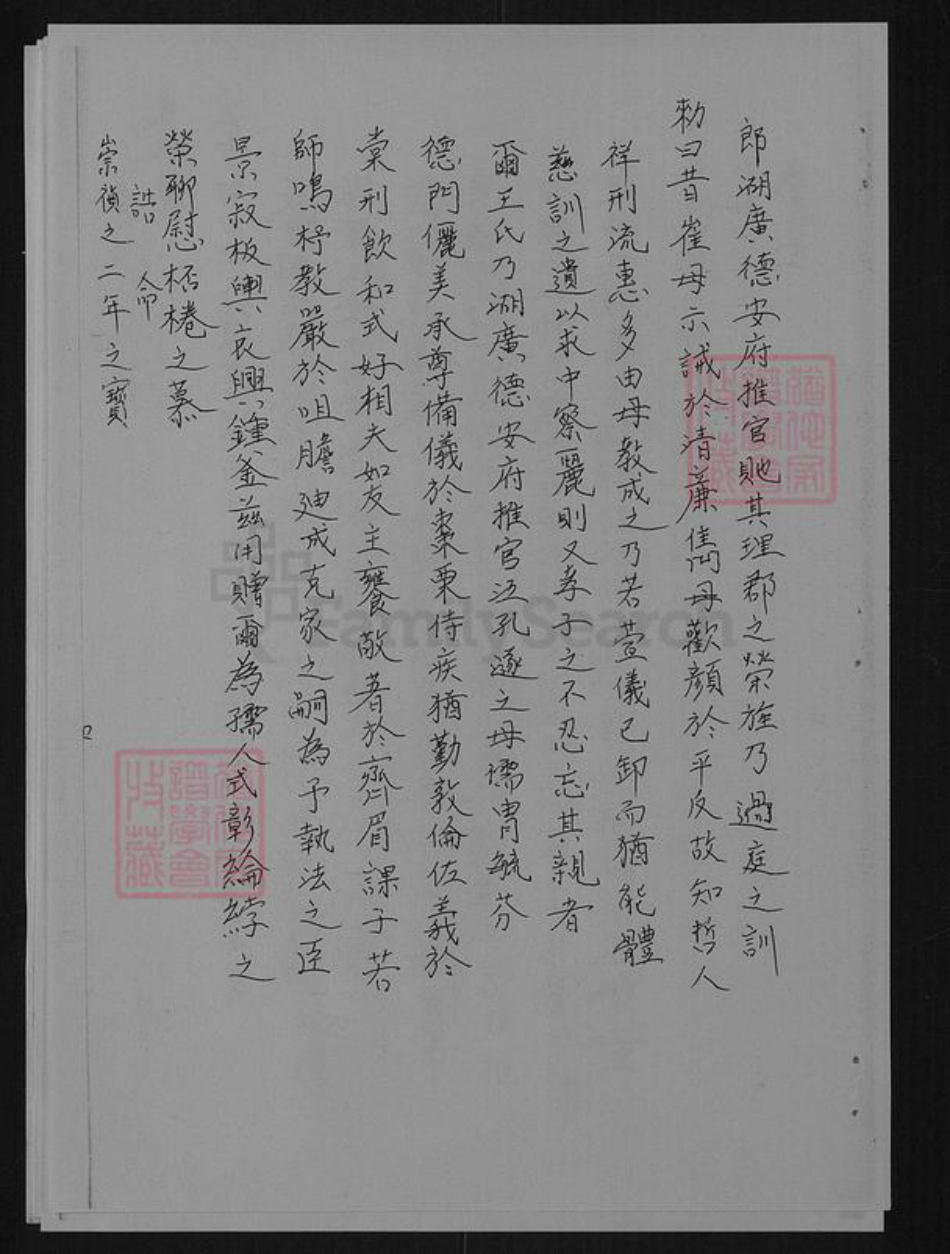 郎湖廣德安府推官貤其理郡之榮旌乃過庭之訓
勑曰昔崔母示誡於清廉雋母歡顏於平反故知哲人
祥刑流惠多由母教成之乃若萱儀已卸而猶能體
慈訓之遺以求中察麗則又孝子之不忍忘其親者
爾王氏乃湖廣德安府推官江孔邃之母儒胄毓芬
德門儷美承尊備儀於棗栗侍疾猶勤敦倫佐義於
棠刑飲和式好相夫如友主饔敵著於齊眉課子若
師鳴杼教嚴於咀膽廸成克家之嗣為予執法之臣
景寂板輿哀興鍾釜茲用贈爾為孺人式彰綸綍之
榮聊慰桮棬之慕
誥 命
崇禎之二年之寶
FamilySearch
譜學會
特藏
譜學會
特藏